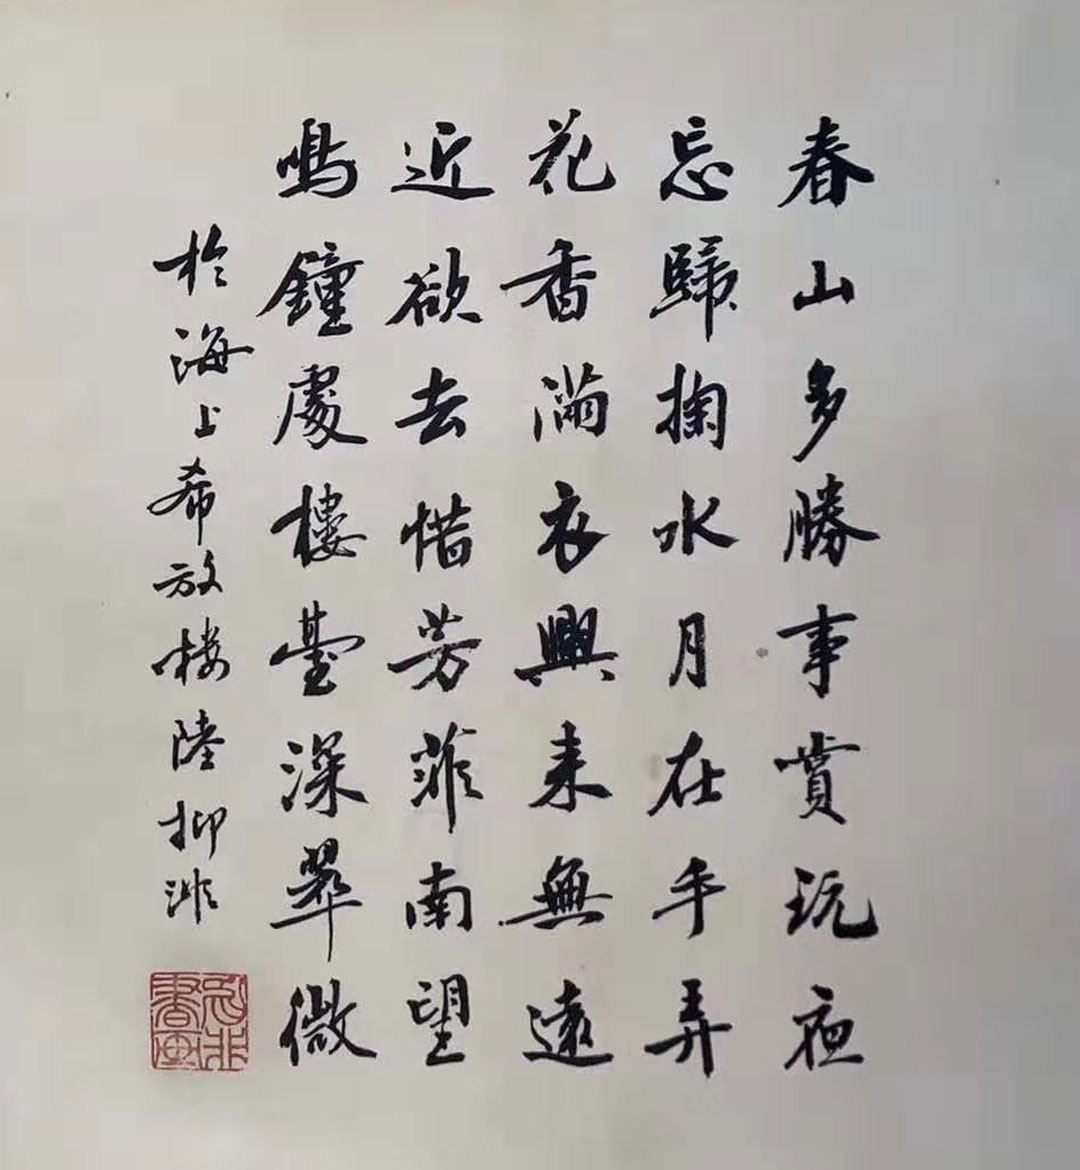 春山多勝事賞玩夜
忘歸掬水月在手弄
花香滿衣興来無遠
近欲去惜芳菲南望
鳴鐘處樓臺深翠微
於海上希放楼陸抑非
抑非書画